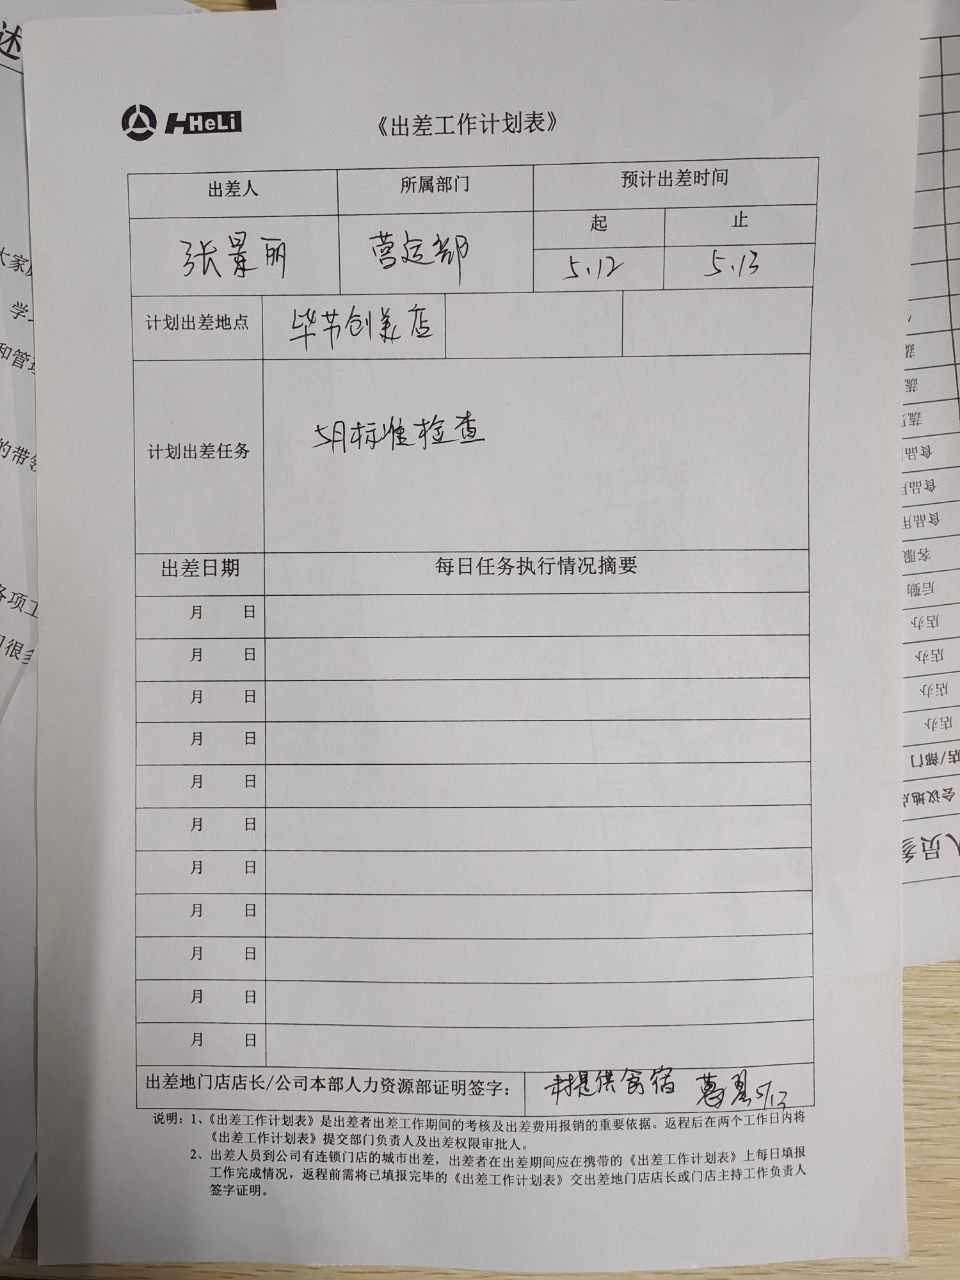 HHeLi
《出差工作计划表》
出差人 所属部门 预计出差时间
起 止
张景丽 营运部 5.12 5.13
计划出差地点 毕节创美店
计划出差任务 5月标准检查
出差日期 每日任务执行情况摘要
月 日
月 日
月 日
月 日
月 日
月 日
月 日
月 日
月 日
月 日
月 日
出差地门店店长/公司本部人力资源部证明签字： 提供食宿 5/13
说明：1、《出差工作计划表》是出差者出差工作期间的考核及出差费用报销的重要依据。返程后在两个工作日内将
《出差工作计划表》提交部门负责人及出差权限审批人。
2、出差人员到公司有连锁门店的城市出差，出差者在出差期间应在携带的《出差工作计划表》上每日填报
工作完成情况，返程前需将已填报完毕的《出差工作计划表》交出差地门店店长或门店主持工作负责人
签字证明。
述
学
和管理
的带领
各项工
很多
蔬
蔬
食品
食品用
食品用
客服
后勤
店办
店办
店办
店办
店/部门
会议地点
人员参